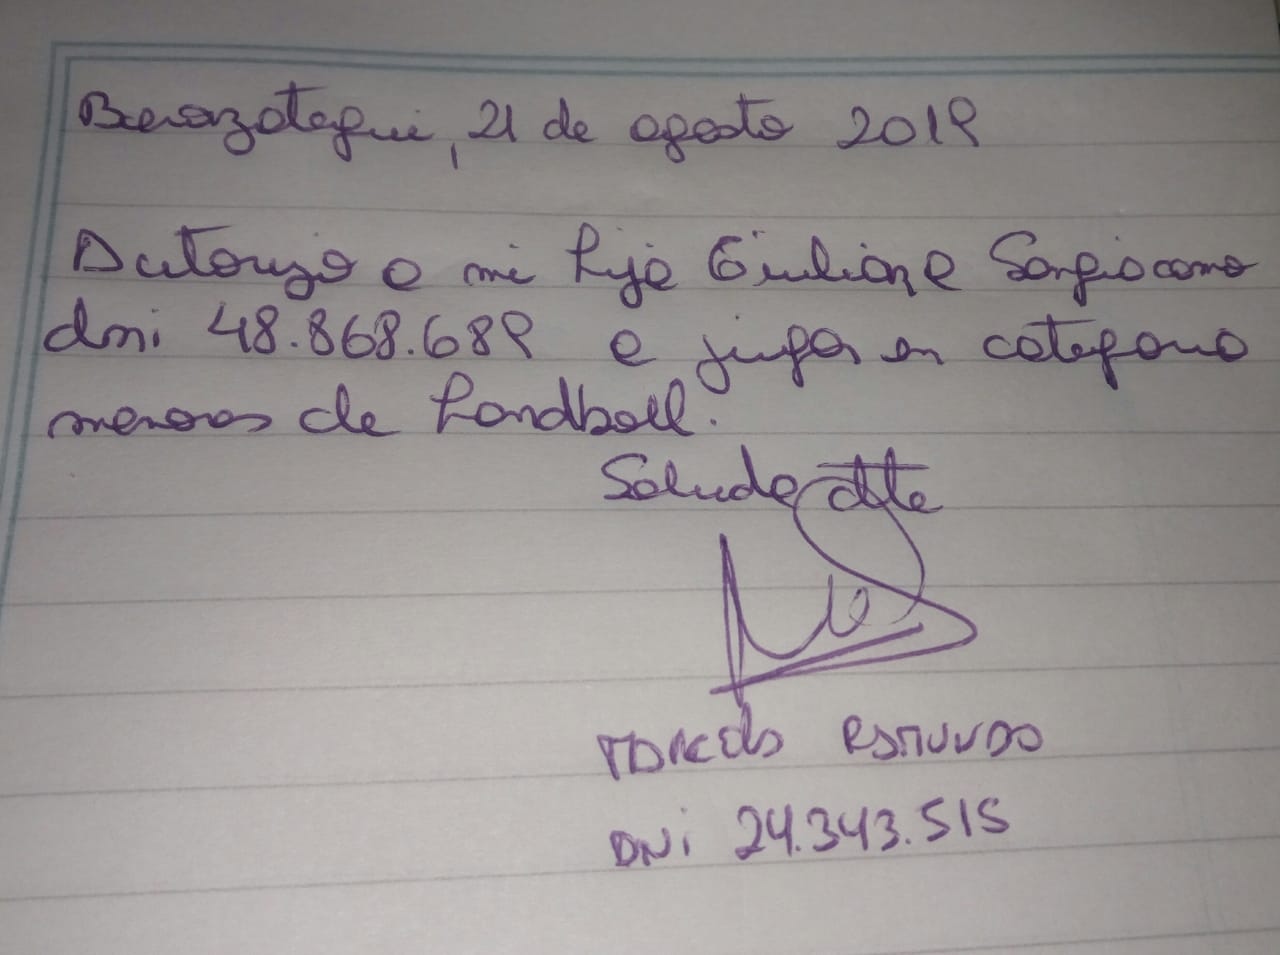 Berazategui, 21 de agosto 2019
Autorizo a mi hija Giuliana Sangiacomo
dni 48.868.689 a jugar en categoria
menores de handball.
Saluda atte
DNi 24.343.515